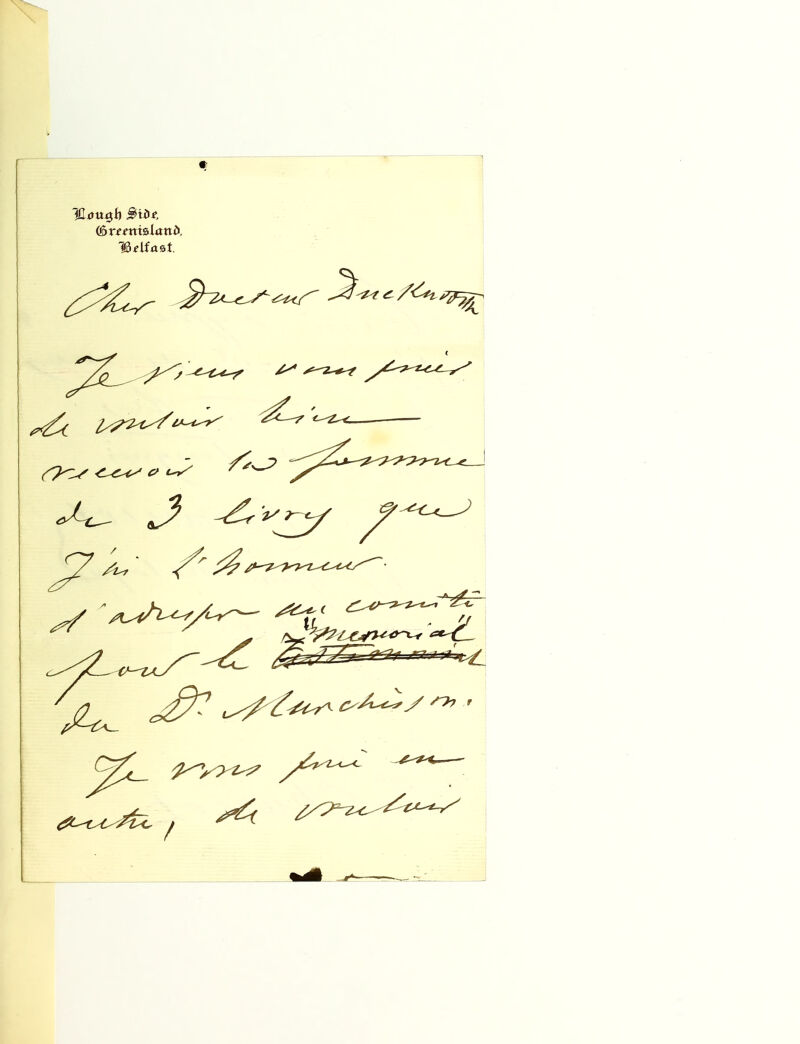 Lough Side,
Greenisland.
Belfast.
Cher Docteur Duckworth
Je viens vous prier
de vouloir bien
recevoir la somme
de 3 livres que
J'ai l'honneur
d'adresser au comité
"memorial"
pour le testimonial
du Dr. Murchisson.
Je vous prie en
outre, de vouloir